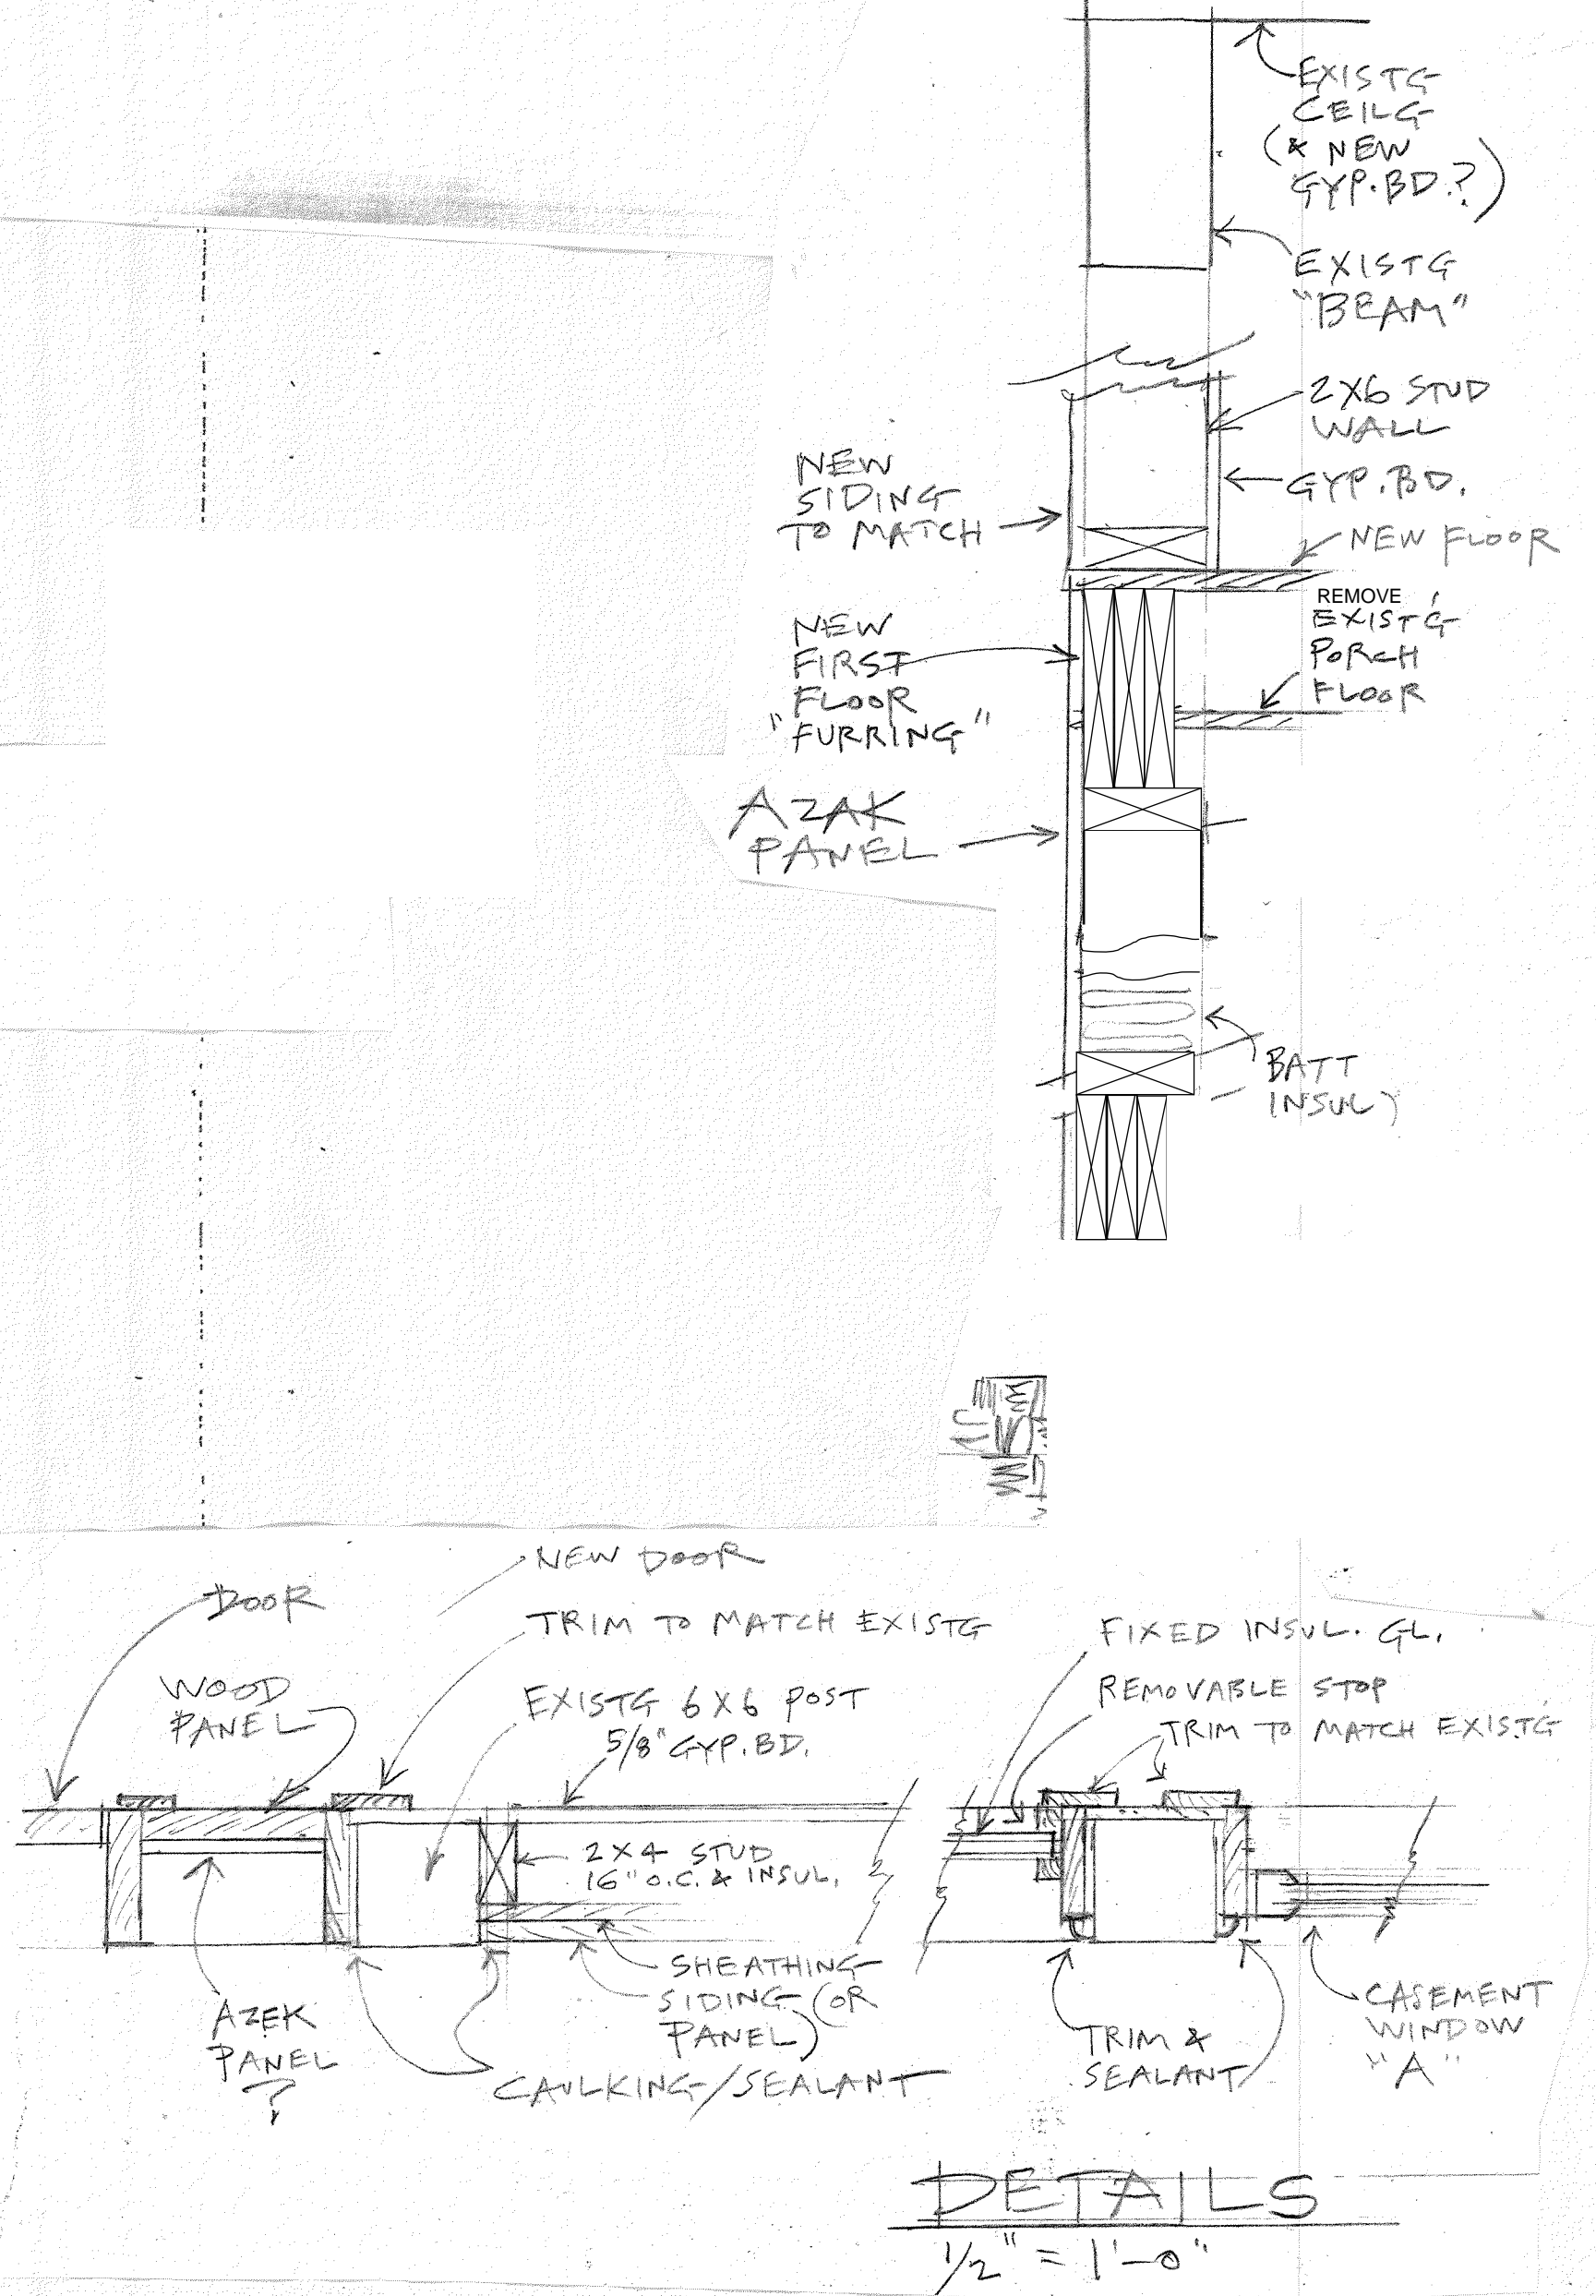 EXISTG
CEILG
(& NEW
GYP.BD.?)
EXISTG
"BEAM"
2X6 STUD
WALL
GYP.BD.
NEW FLOOR
NEW
SIDING
TO MATCH
REMOVE
EXIST'G
PORCH
FLOOR
NEW
FIRST
FLOOR
"FURRING"
AZAK
PANEL
BATT
INSUL
NEW DOOR
DOOR
TRIM TO MATCH EXISTG
WOOD
PANEL
EXISTG 6X6 POST
5/8" GYP.BD.
2X4 STUD
16" O.C. & INSUL.
SHEATHING
SIDING (OR
PANEL)
AZEK
PANEL
?
CAULKING/SEALANT
FIXED INSUL. GL.
REMOVABLE STOP
TRIM TO MATCH EXIST'G
TRIM &
SEALANT
CASEMENT
WINDOW
"A"
DETAILS
1/2" = 1'-0"